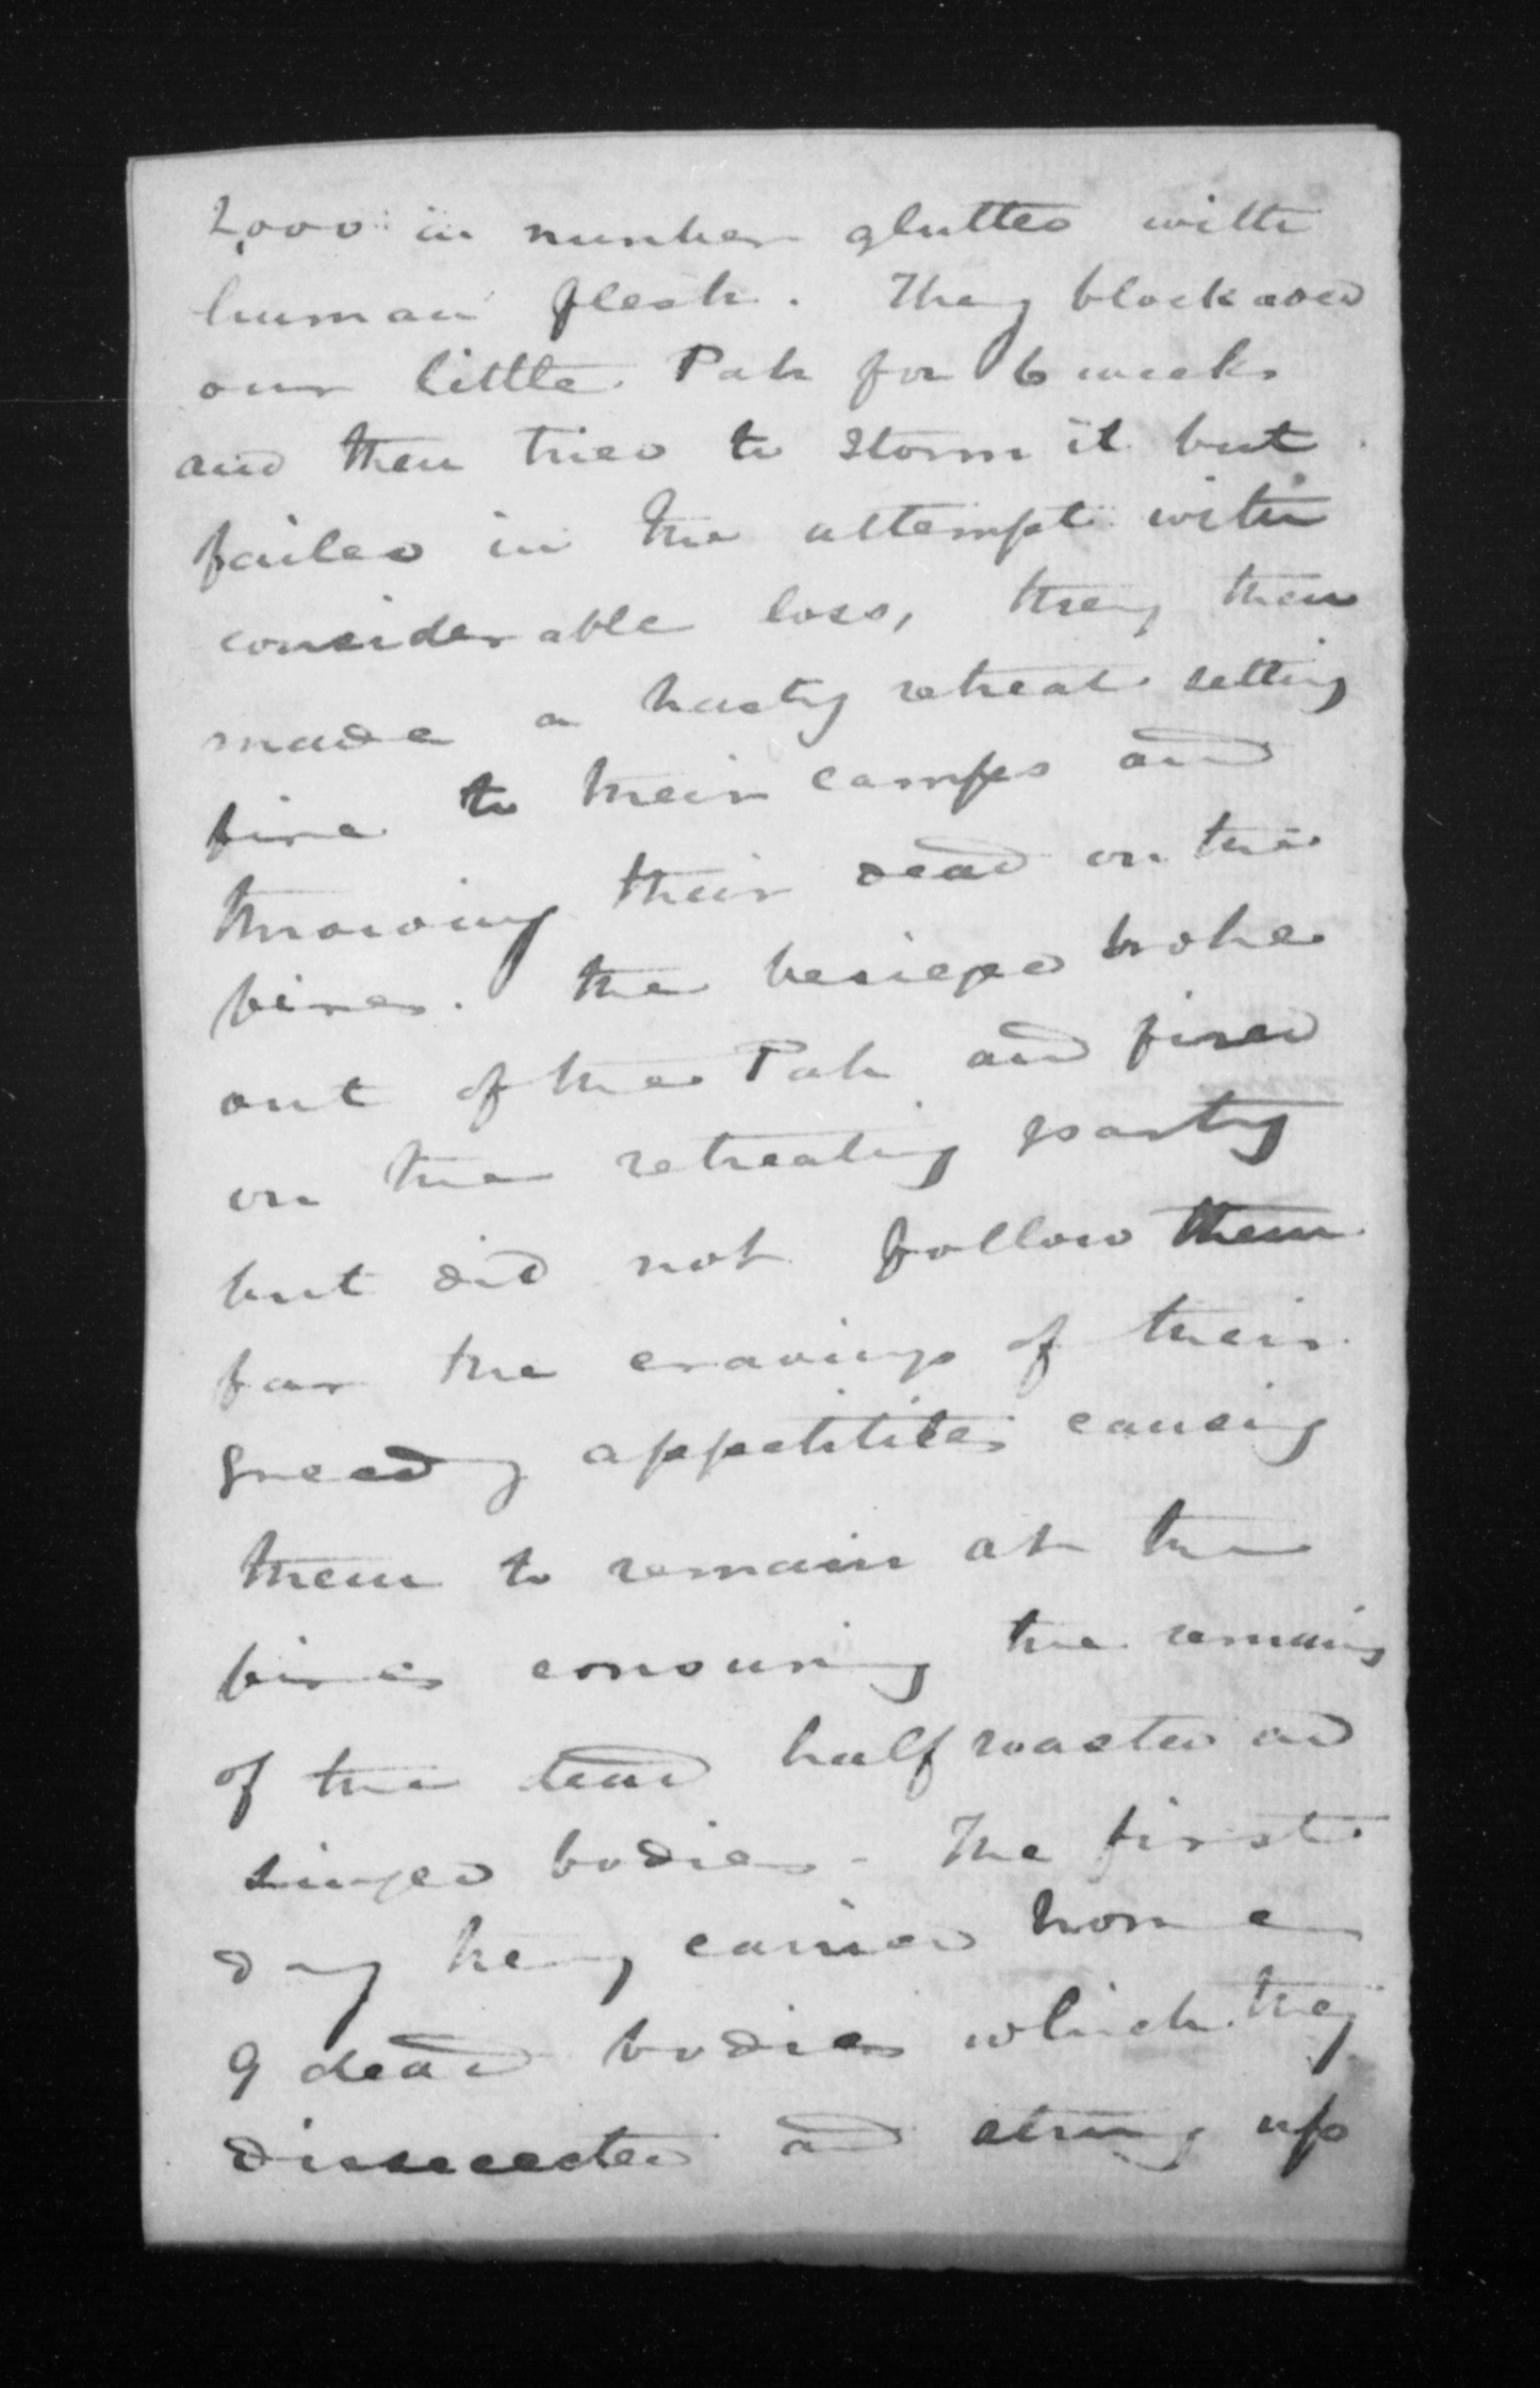 2,000 in number glutted with
human flesh. They blockaded
our little Pah for 6 weeks
and then tried to storm it but
failed in the attempt with
considerable loss, they then
made a hasty retreat setting
fire to their camps and
throwing their dead on the
fires. the besieged broke
out of the Pah and fired
on the retreating party
but did not follow them
far the cravings of their
greedy appetities causing
them to remain at the
fires consuming the remains
of the dead half roasted and
singed bodies - The first
day they carried home
9 dead bodies which they
dissected and strung up